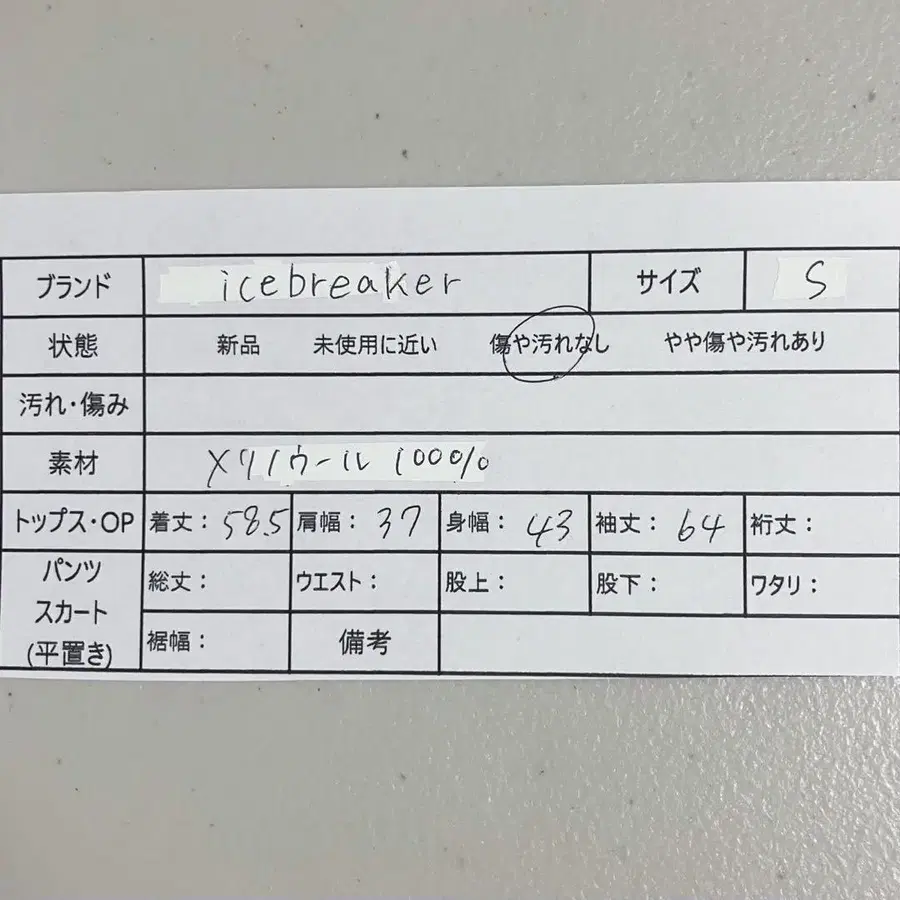 ブランド icebreaker サイズ S
状態 新品 未使用に近い 傷や汚れなし やや傷や汚れあり
汚れ・傷み
素材 メリノウール 100%
トップス・OP 着丈： 58.5 肩幅： 37 身幅： 43 袖丈： 64 裄丈：
パンツ
スカート
(平置き)
総丈： ウエスト： 股上： 股下： ワタリ：
裾幅： 備考